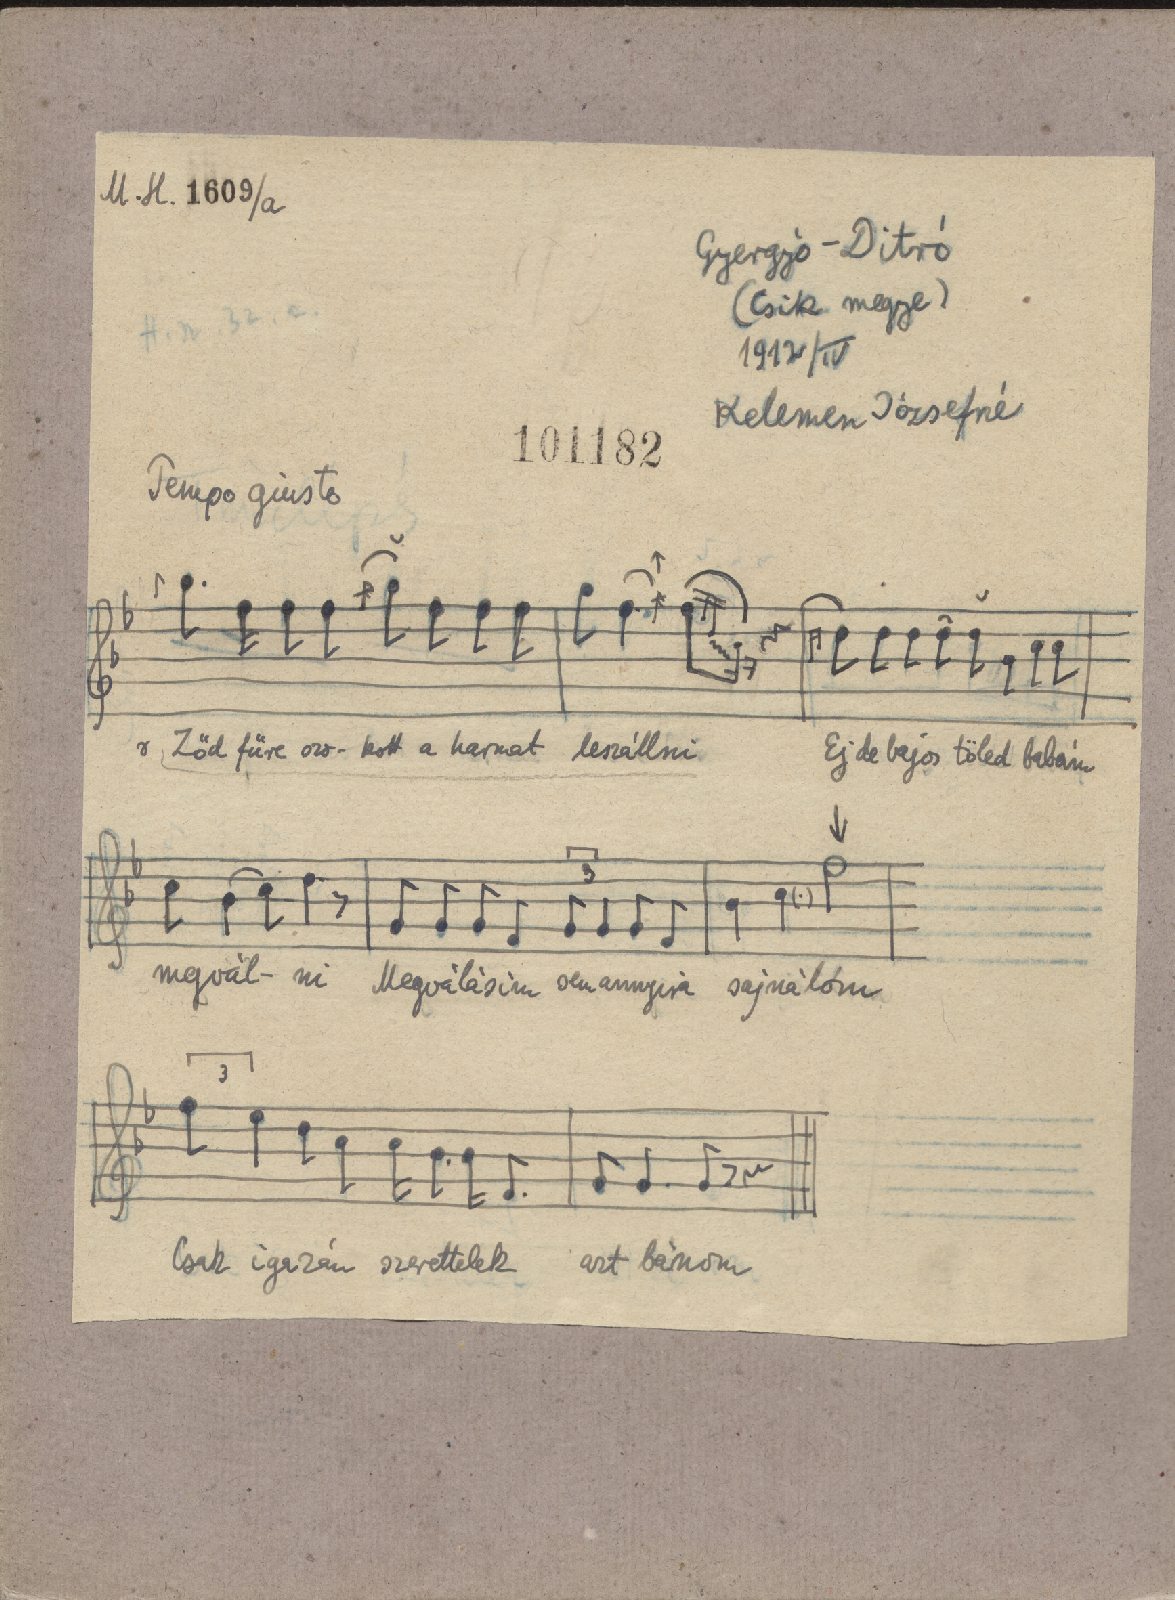 M.H. 1609/a
Gyergyó-Ditró
(Csik megye)
1912/IV
Kelemen Józsefné
101182
Tempo giusto
Ződ füre szo-kott a harmat leszállni Ej de bajos tőled babám
3
megvál-ni Megválásim sem annyira sajnálóm
3
Csak igazán szerettelek azt bánom